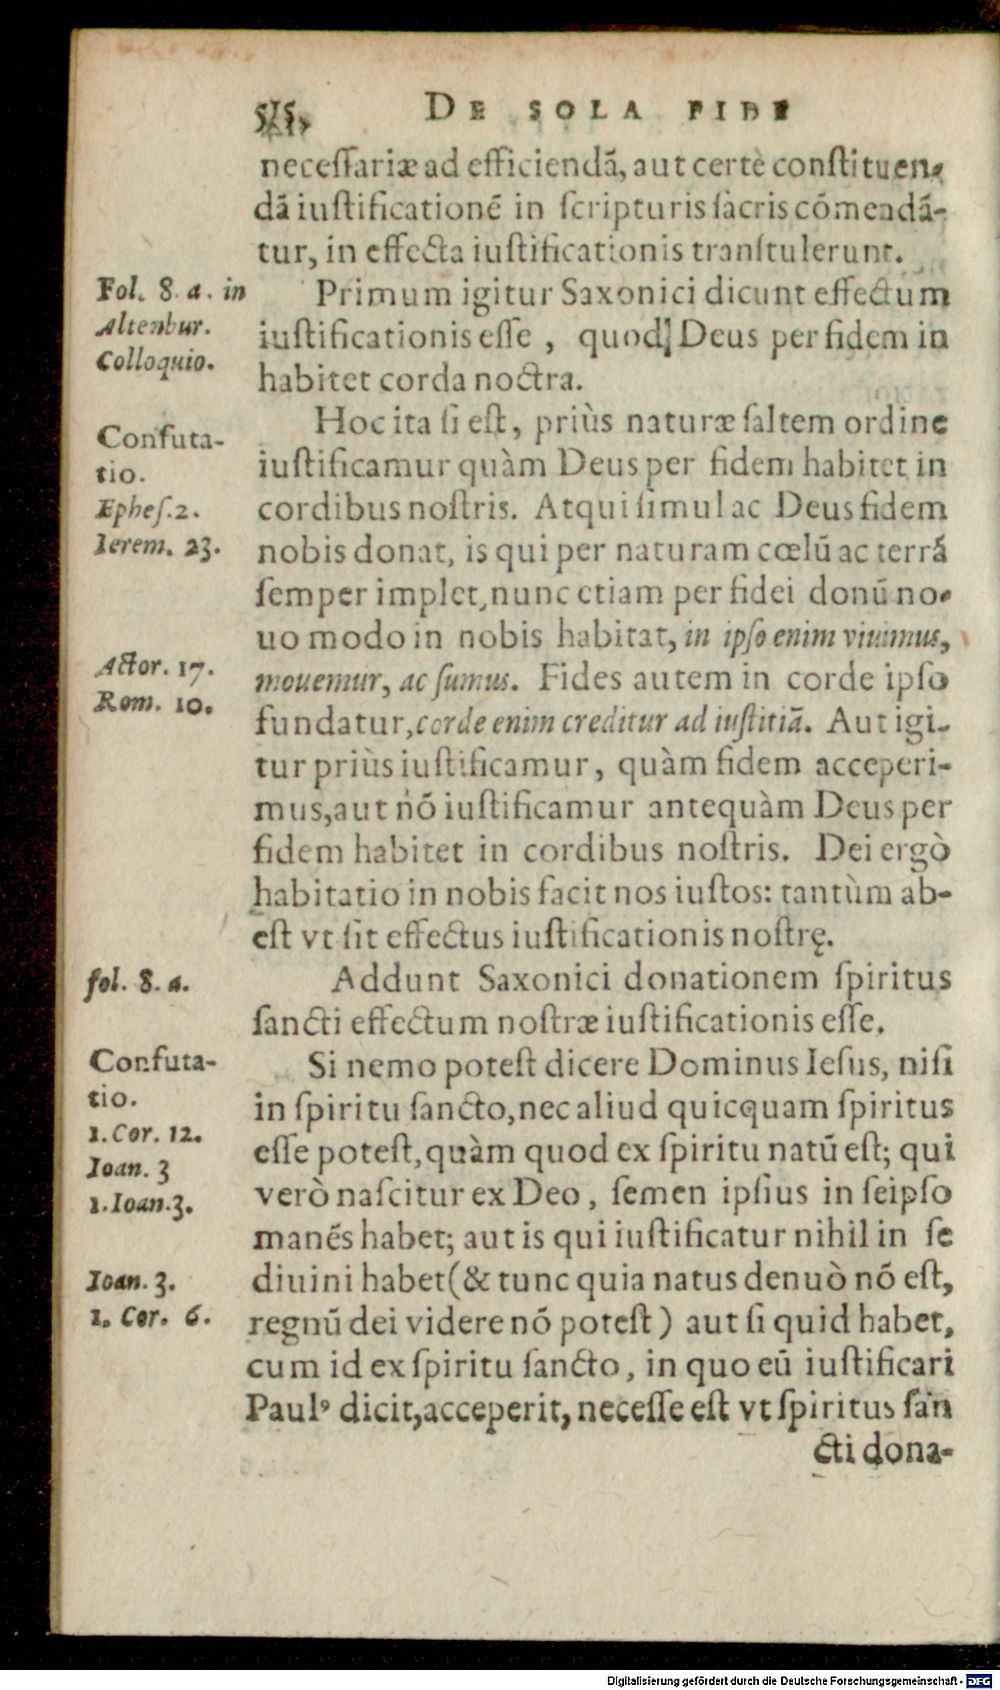 DE SOLA FIDE
necessariæ ad efficiendã, aut certè constituen-
dã iustificationẽ in scripturis sacris cõmendã-
tur, in effecta iustificationis transtulerunt.
Fol. 8 a. in
Altenbur.
Colloquio.
Primum igitur Saxonici dicunt effectum
iustificationis esse, quod Deus per fidem in
habitet corda noctra.
Confuta-
tio.
Ephes. 2.
Ierem. 23.
Hoc ita si est, priùs naturæ saltem ordine
iustificamur quàm Deus per fidem habitet in
cordibus nostris. Atqui simul ac Deus fidem
nobis donat, is qui per naturam cœlũ ac terrã
semper implet, nunc etiam per fidei donũ no-
uo modo in nobis habitat, in ipso enim viuimus,
Actor. 17.
Rom. 10.
mouemur, ac sumus. Fides autem in corde ipso
fundatur, corde enim creditur ad iustitiã. Aut igi-
tur priùs iustificamur, quàm fidem acceperi-
mus, aut nõ iustificamur antequàm Deus per
fidem habitet in cordibus nostris. Dei ergò
habitatio in nobis facit nos iustos: tantùm ab-
est vt sit effectus iustificationis nostrę.
fol. 8. a.
Addunt Saxonici donationem spiritus
sancti effectum nostræ iustificationis esse.
Confuta-
tio.
1. Cor. 12.
Ioan. 3
1. Ioan. 3.
Si nemo potest dicere Dominus Iesus, nisi
in spiritu sancto, nec aliud quicquam spiritus
esse potest, quàm quod ex spiritu natũ est; qui
verò nascitur ex Deo, semen ipsius in seipso
manẽs habet; aut is qui iustificatur nihil in se
Ioan. 3.
1. Cor. 6.
diuini habet (& tunc quia natus denuò nõ est,
regnũ dei videre nõ potest) aut si quid habet,
cum id ex spiritu sancto, in quo eũ iustificari
Paulꝰ dicit, acceperit, necesse est vt spiritus san
cti dona-
Digitalisierung gefördert durch die Deutsche Forschungsgemeinschaft - DFG